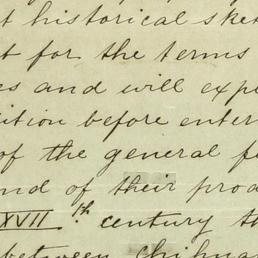 t historical sket
t for the terms
es and will expe
ition before enter
of the general f
nd of their prod
XVII.th century th
between Chihua